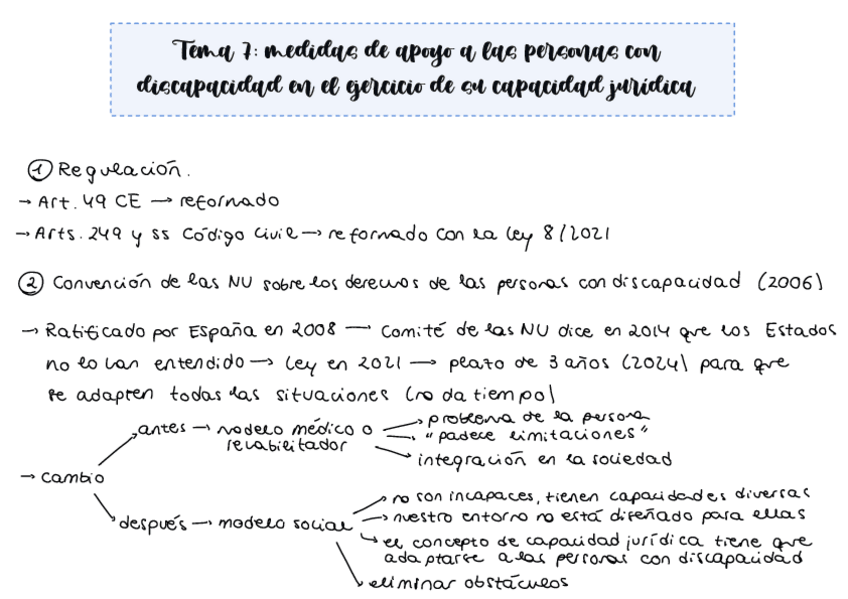 Tema 7: medidas de apoyo a las personas con
discapacidad en el ejercicio de su capacidad jurídica
① Regulación.
→ Art. 49 CE → reformado
→ Arts. 249 y ss Código Civil → reformado con la ley 8/2021
② Convención de las NU sobre los derechos de las personas con discapacidad (2006)
→ Ratificado por España en 2008 — Comité de las NU dice en 2014 que los Estados
no lo han entendido → ley en 2021 → plazo de 3 años (2024) para que
se adapten todas las situaciones (no da tiempo)
→ cambio
antes → modelo médico o
rehabilitador
→ problema de la persona
→ "padece limitaciones"
→ integración en la sociedad
después → modelo social
→ no son incapaces, tienen capacidades diversas
→ nuestro entorno no está diseñado para ellas
→ el concepto de capacidad jurídica tiene que
adaptarse a las personas con discapacidad
→ eliminar obstáculos